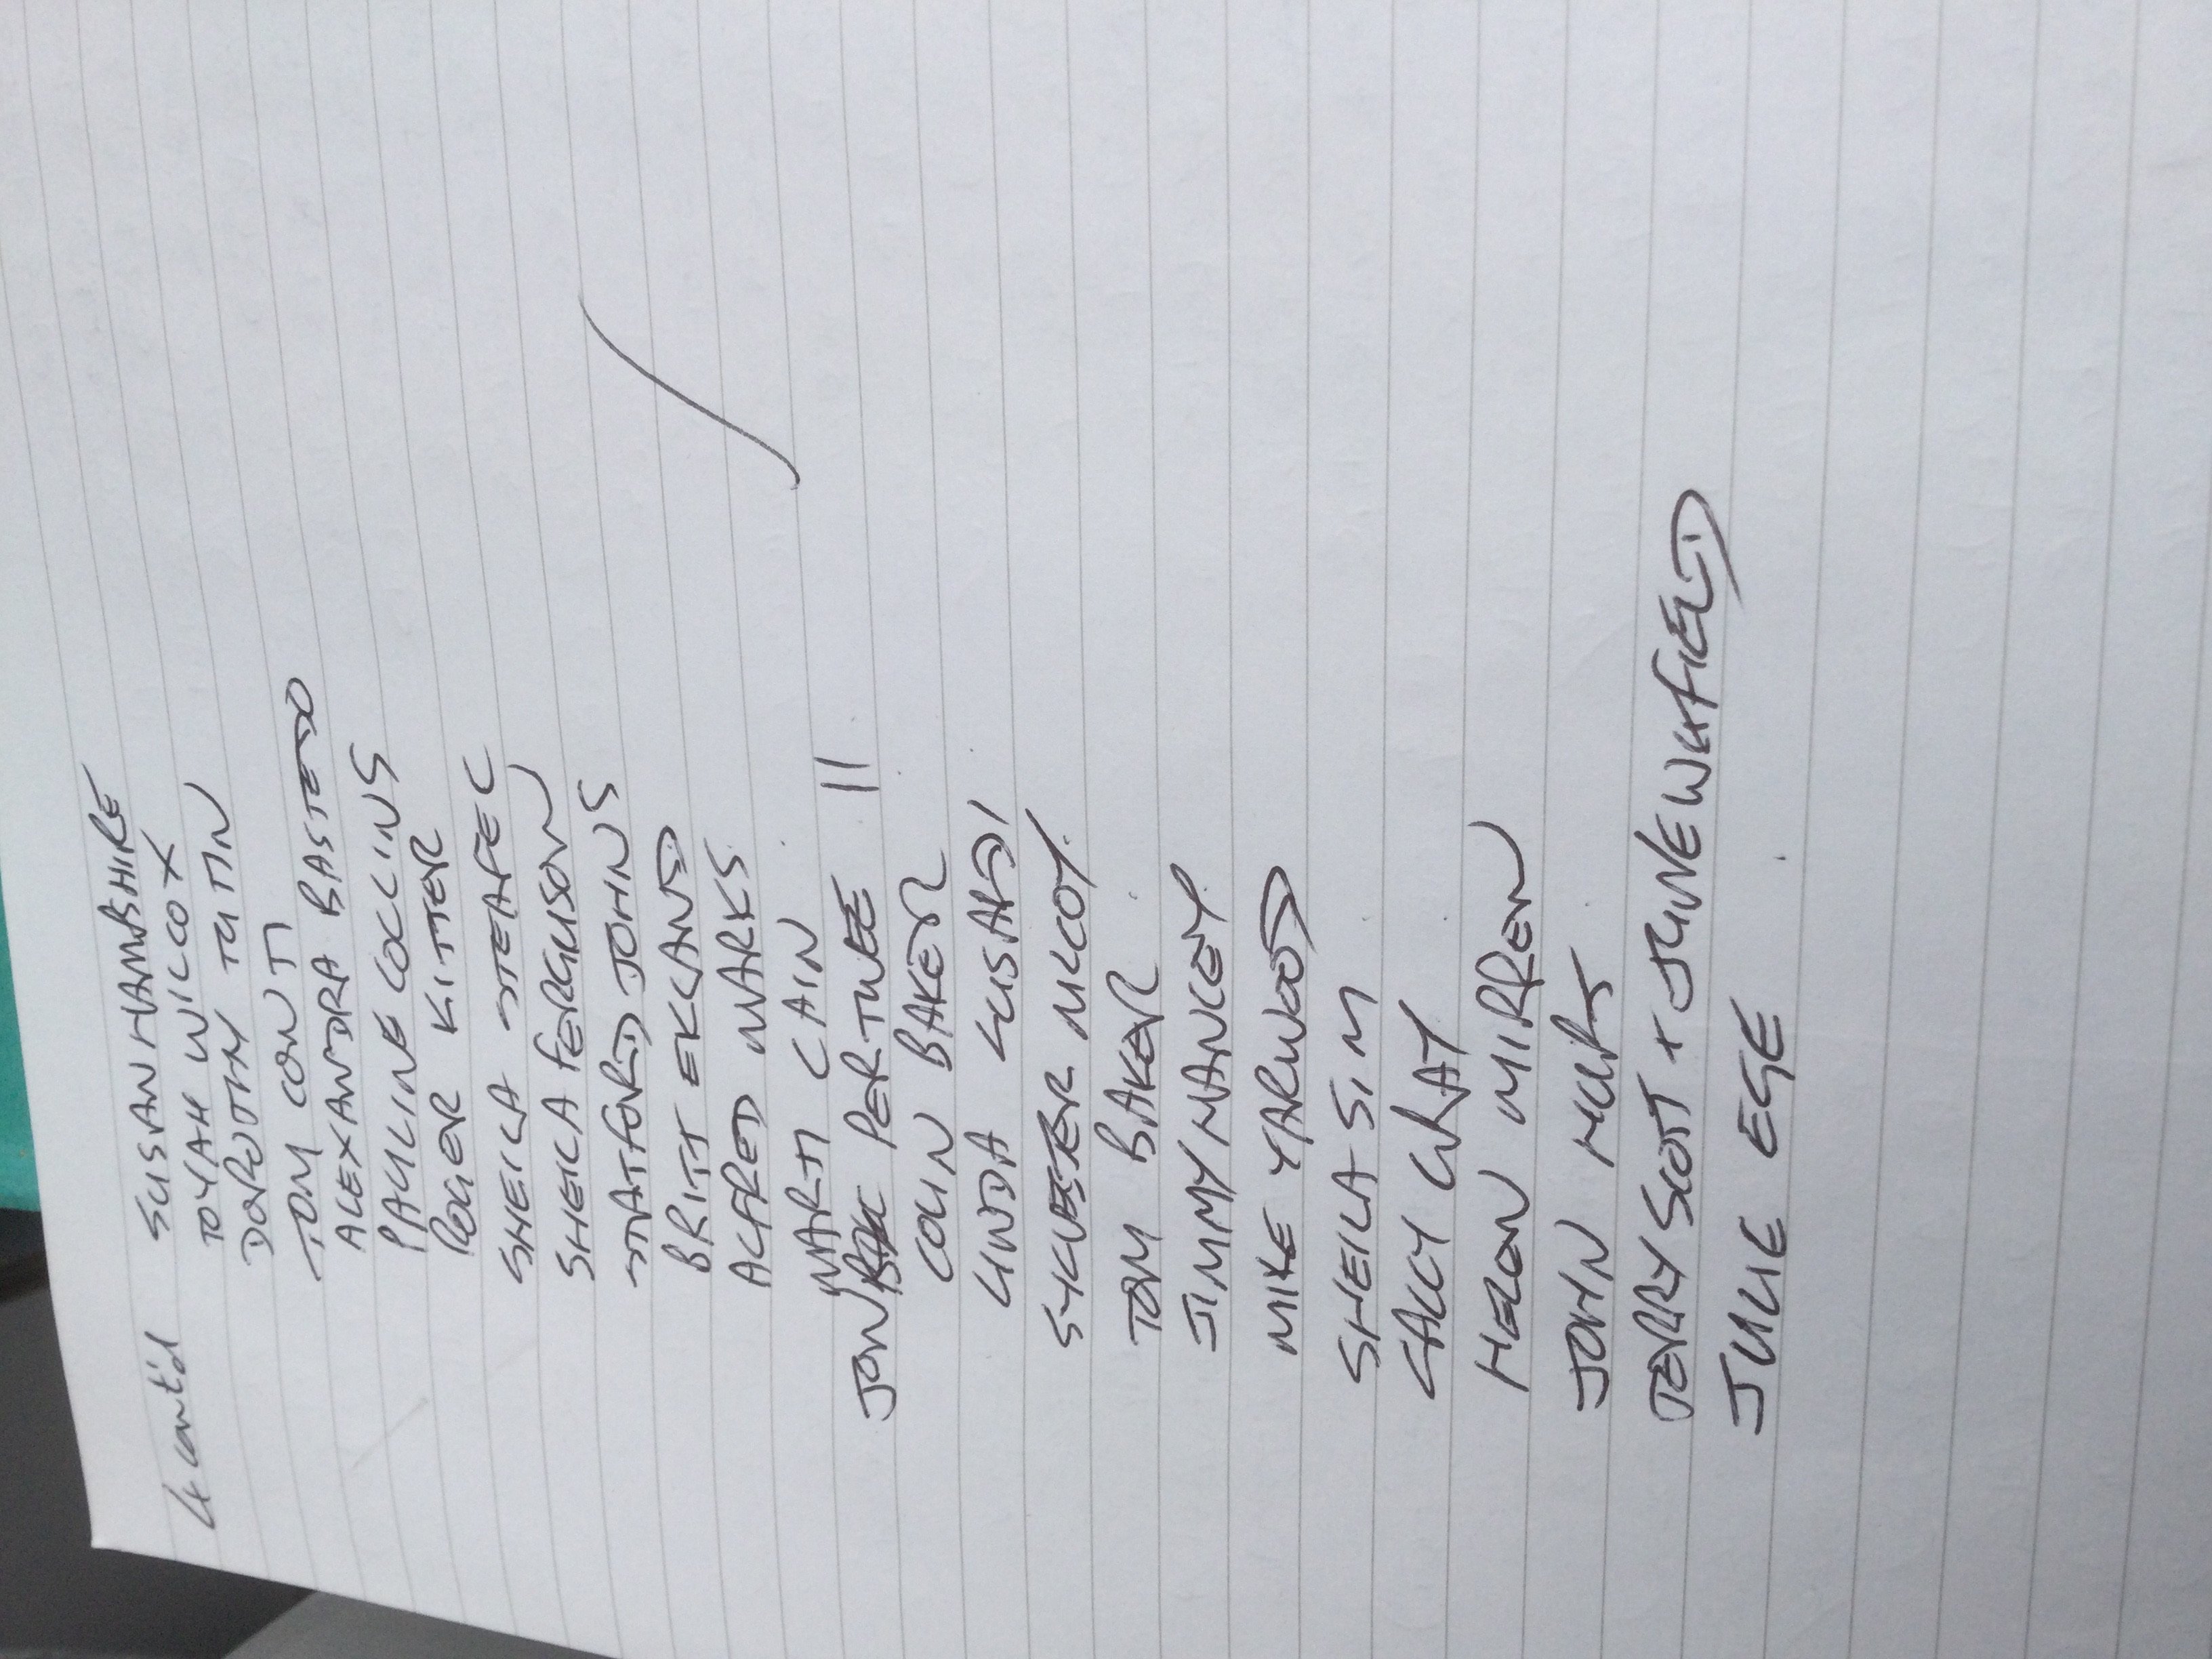 4 cont'd SUSAN HAMPSHIRE
TOYAH WILCOX
DOROTHY TUTIN
TOM CONTI
ALEXANDRA BASTEDO
PAULINE COLLINS
ROGER KITTER
SHEILA STEAFEL
SHEILA FERGUSON
STATFORD JOHNS
BRITT EKLAND
ALFRED MARKS
MARTI CAIN
JON PERTWEE
COLIN BAKER
LINDA LUSARDI
SYLVESTER McCOY
TOM BAKER
JIMMY MANLEY
MIKE YARWOOD
SHEILA SIM
SALLY GRAY
HELEN MIRREN
JOHN HURT
TERRY SCOTT + JUNE WHITFIELD
JULIE EGE